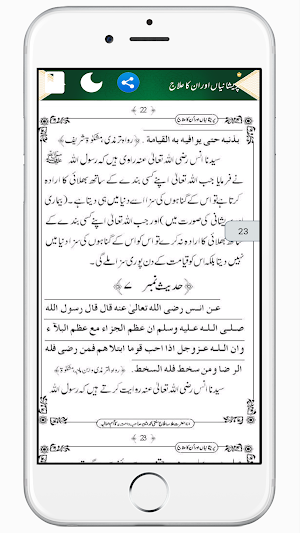 پریشانیاں اور ان کا علاج
22
پریشانیاں اور ان کا علاج
بذنبه حتى يوافيه به القيامة . (رواہ ترمذی مشکوٰۃ شریف)
سیدنا انس رضی اللہ تعالیٰ عنہ راوی ہیں کہ رسول اللہ
نے فرمایا جب اللہ تعالیٰ اپنے کسی بندے کے ساتھ بھلائی کا ارادہ
کرتا ہے تو اس کے گناہوں کی سزا اسے دنیا میں ہی دیتا ہے۔ (بیماری
پریشانی کی صورت میں) اور جب اللہ تعالیٰ اپنے کسی بندے کے
ساتھ بھلائی کا ارادہ نہ کرے تو اس کو اس کے گناہوں کی سزا دنیا میں
23
نہیں دیتا بلکہ اس کو قیامت کے دن پوری سزا ملے گی۔
حدیث نمبر ۷
عن انس رضى الله تعالىٰ عنه قال قال رسول الله
صلى الله عليه وسلم ان عظم الجزاء مع عظم البلآء ،
وان الله عزوجل اذا احب قوما ابتلاهم فمن رضى فله
الرضا ومن سخط فله السخط.
سیدنا انس رضی اللہ تعالیٰ عنہ روایت کرتے ہیں کہ رسول اللہ
23
پریشانیاں اور ان کا علاج